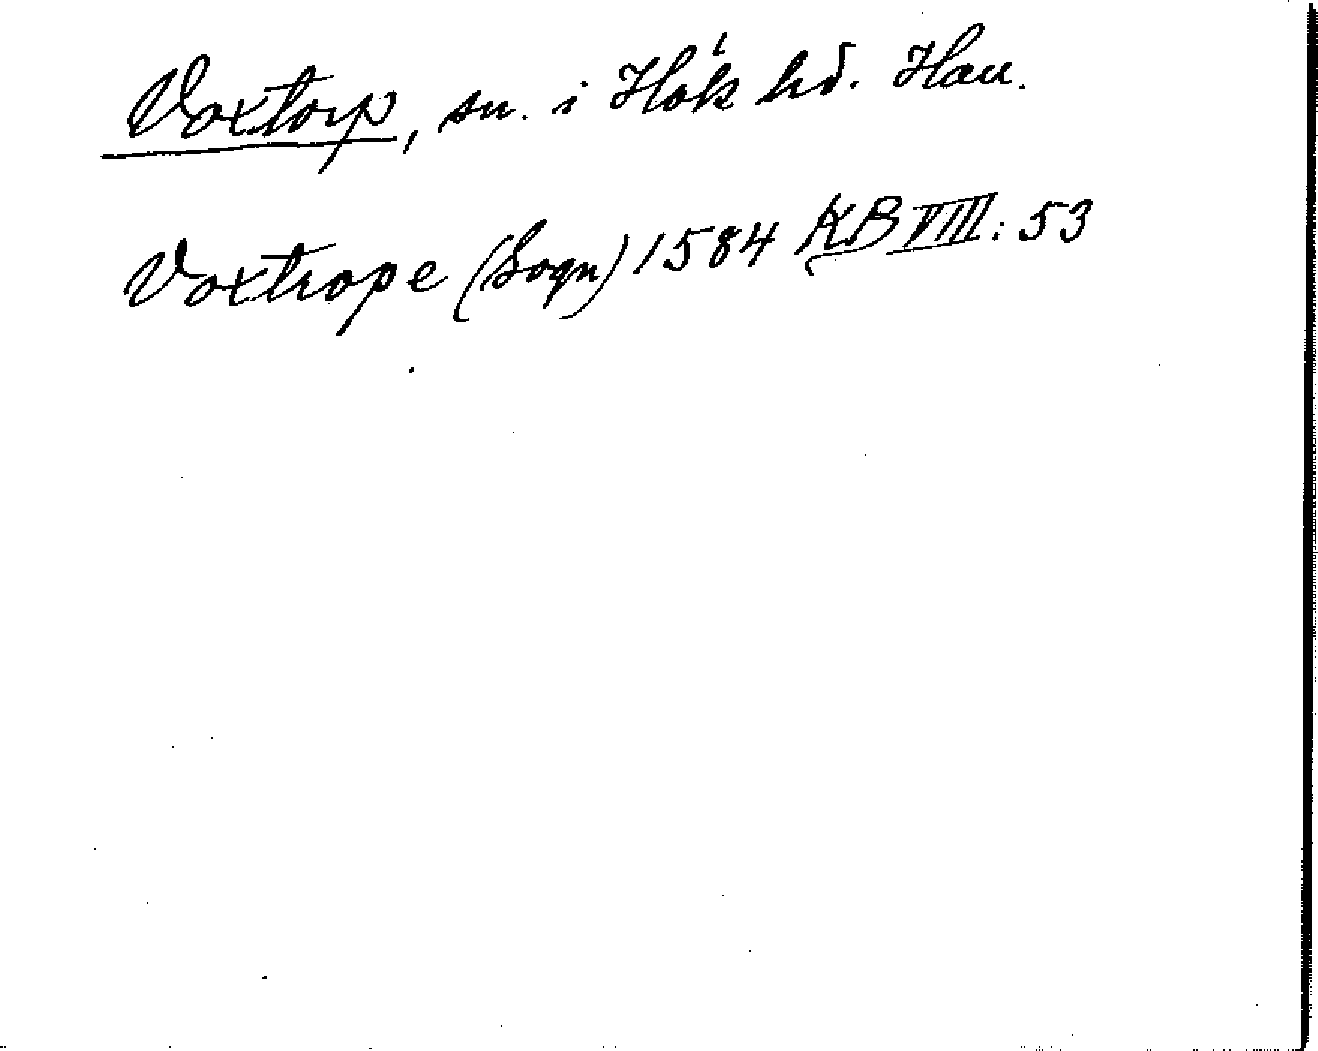 Voxtorp, sn. i Hök hd. Hall.
Voxtrope (Sogn) 1584 KB VIII: 53